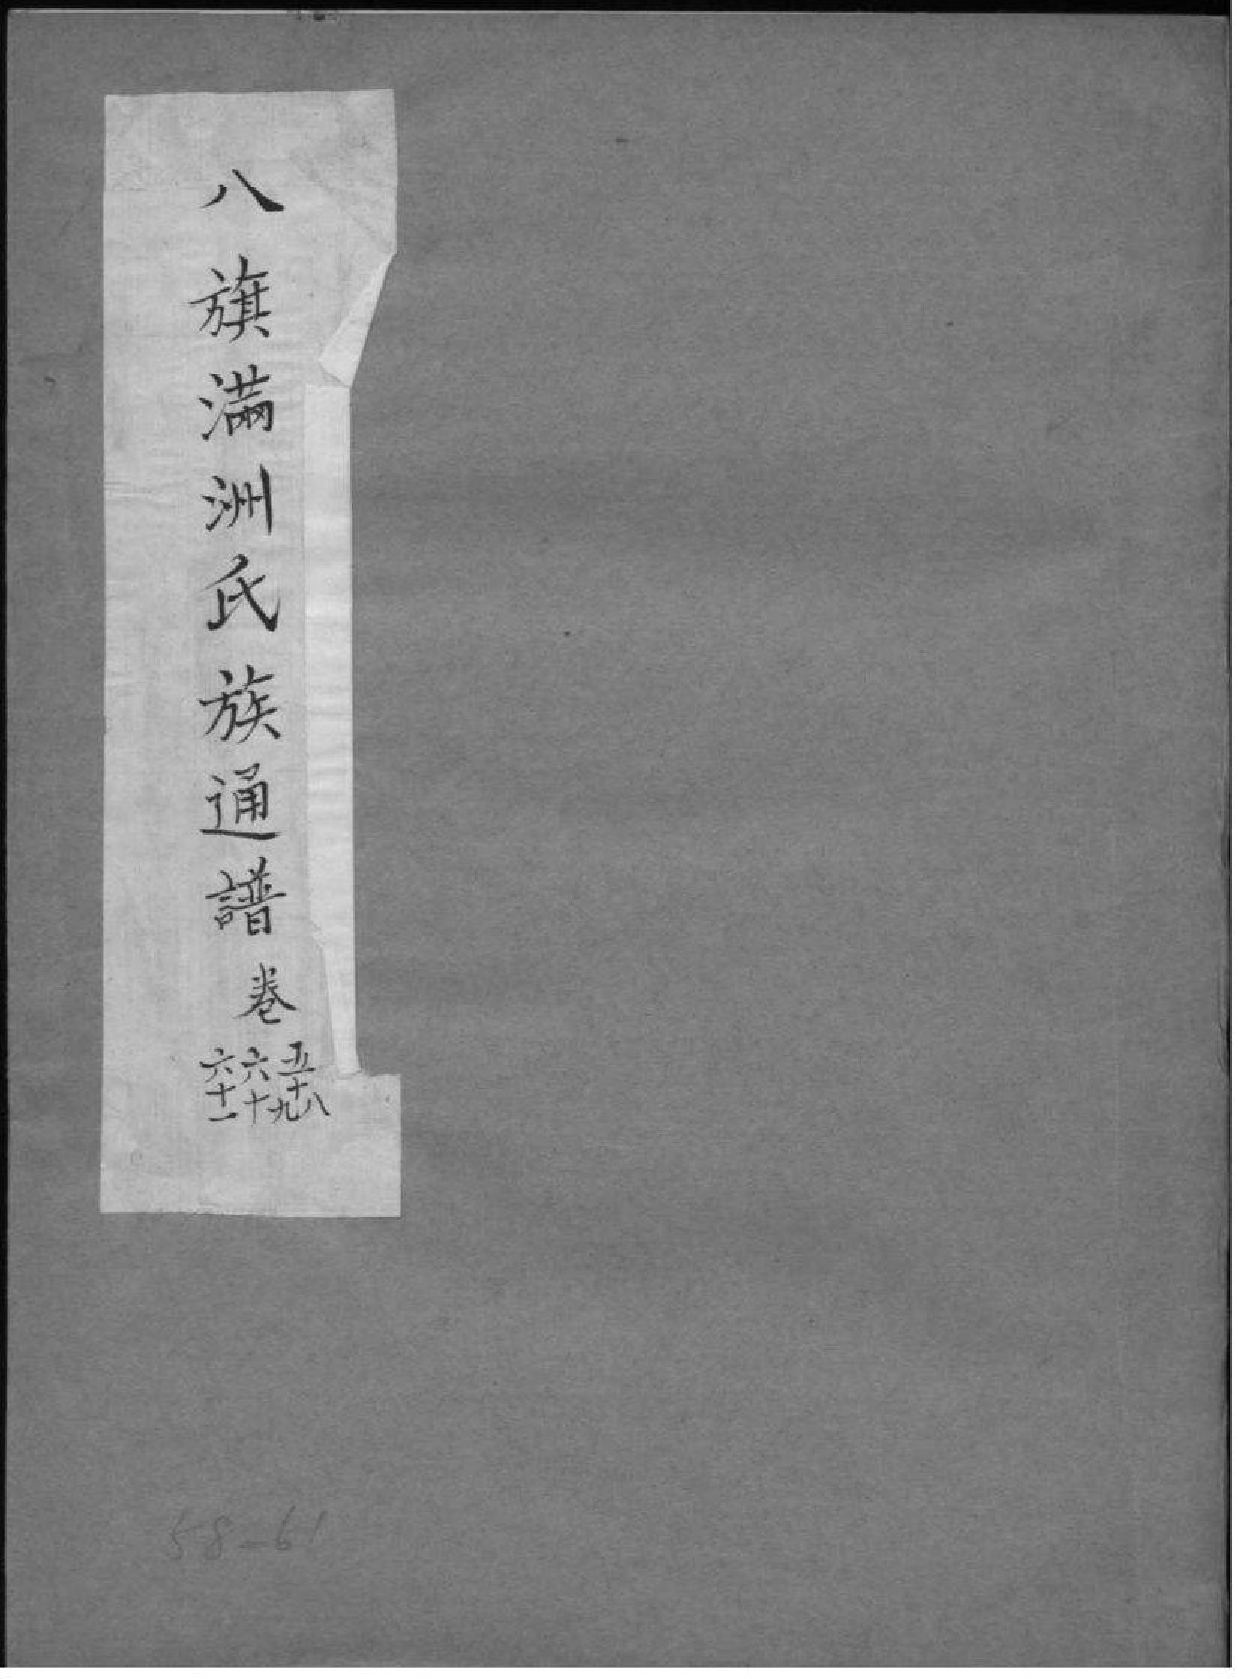 八旗滿洲氏族通譜卷
五十八
九
六十
六十一
58-61